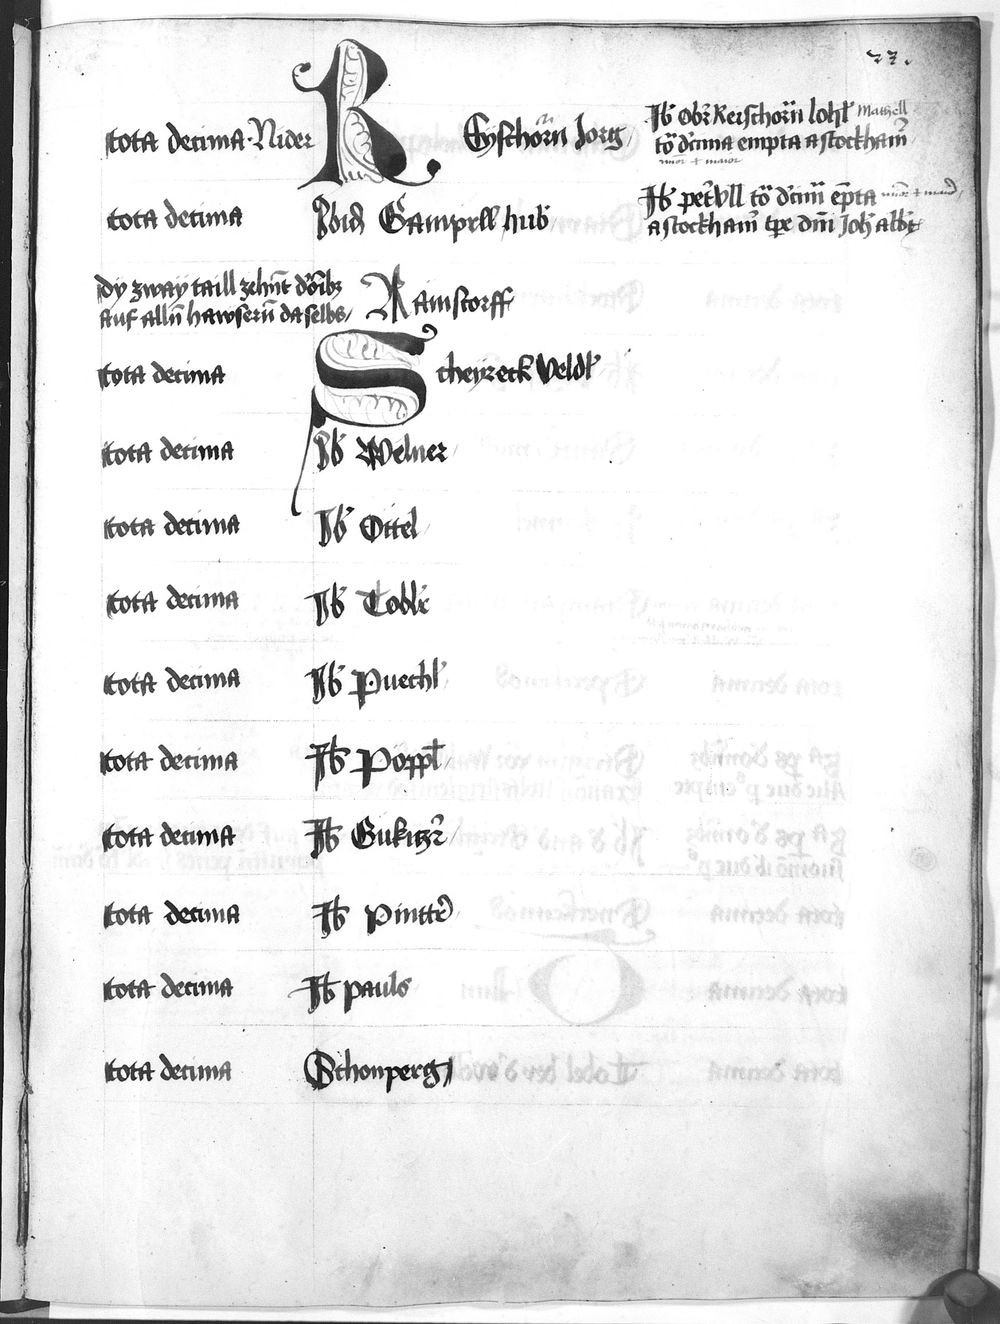 27.
tota decima Nider Reyschorn Jorg
Jb Obr Reischorn lohl Mathell
tō dcima empta a stockham
minor + maior
tota decima Ibid Gampell hub
Jb petr Vll tō dcim empta
a stockham tpe dm Joh alb
dy zway taill zehnt
auf alln hawsern daselbs Ramstorff
tota decima Stheyreck Veldl
tota decima Jb Welner
tota decima Jb Ottel
tota decima Jb Toblr
tota decima Jb Puechl
tota decima Jb Pöppl
tota decima Jb Gukitzr
tota decima Jb Pintter
tota decima Jb pauls
tota decima Schonperg